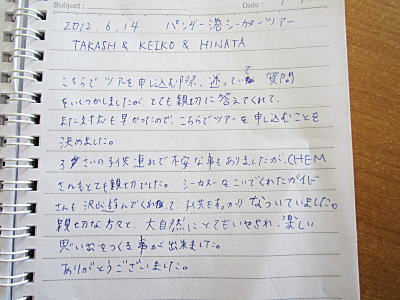 Subject :
Date :
2012.6.14 パンガー湾シーカヌーツアー
TAKASHI & KEIKO & HINATA
こちらでツアーを申し込む際、迷っていて 質問
をいくつかしましたが、とても親切に答えてくれて、
また対応も早かったので、こちらでツアーを申し込むことを
決めました。
3才さいの子供連れで不安な事もありましたが、CHEM
さんもとても親切でした。シーカヌーをこいでくれたガイド
さんも沢山遊んでくれて、子供もすっかりなついていました。
親切な方々と、大自然にとてもいやされ、楽しい
思い出をつくる事が出来ました。
ありがとうございました。